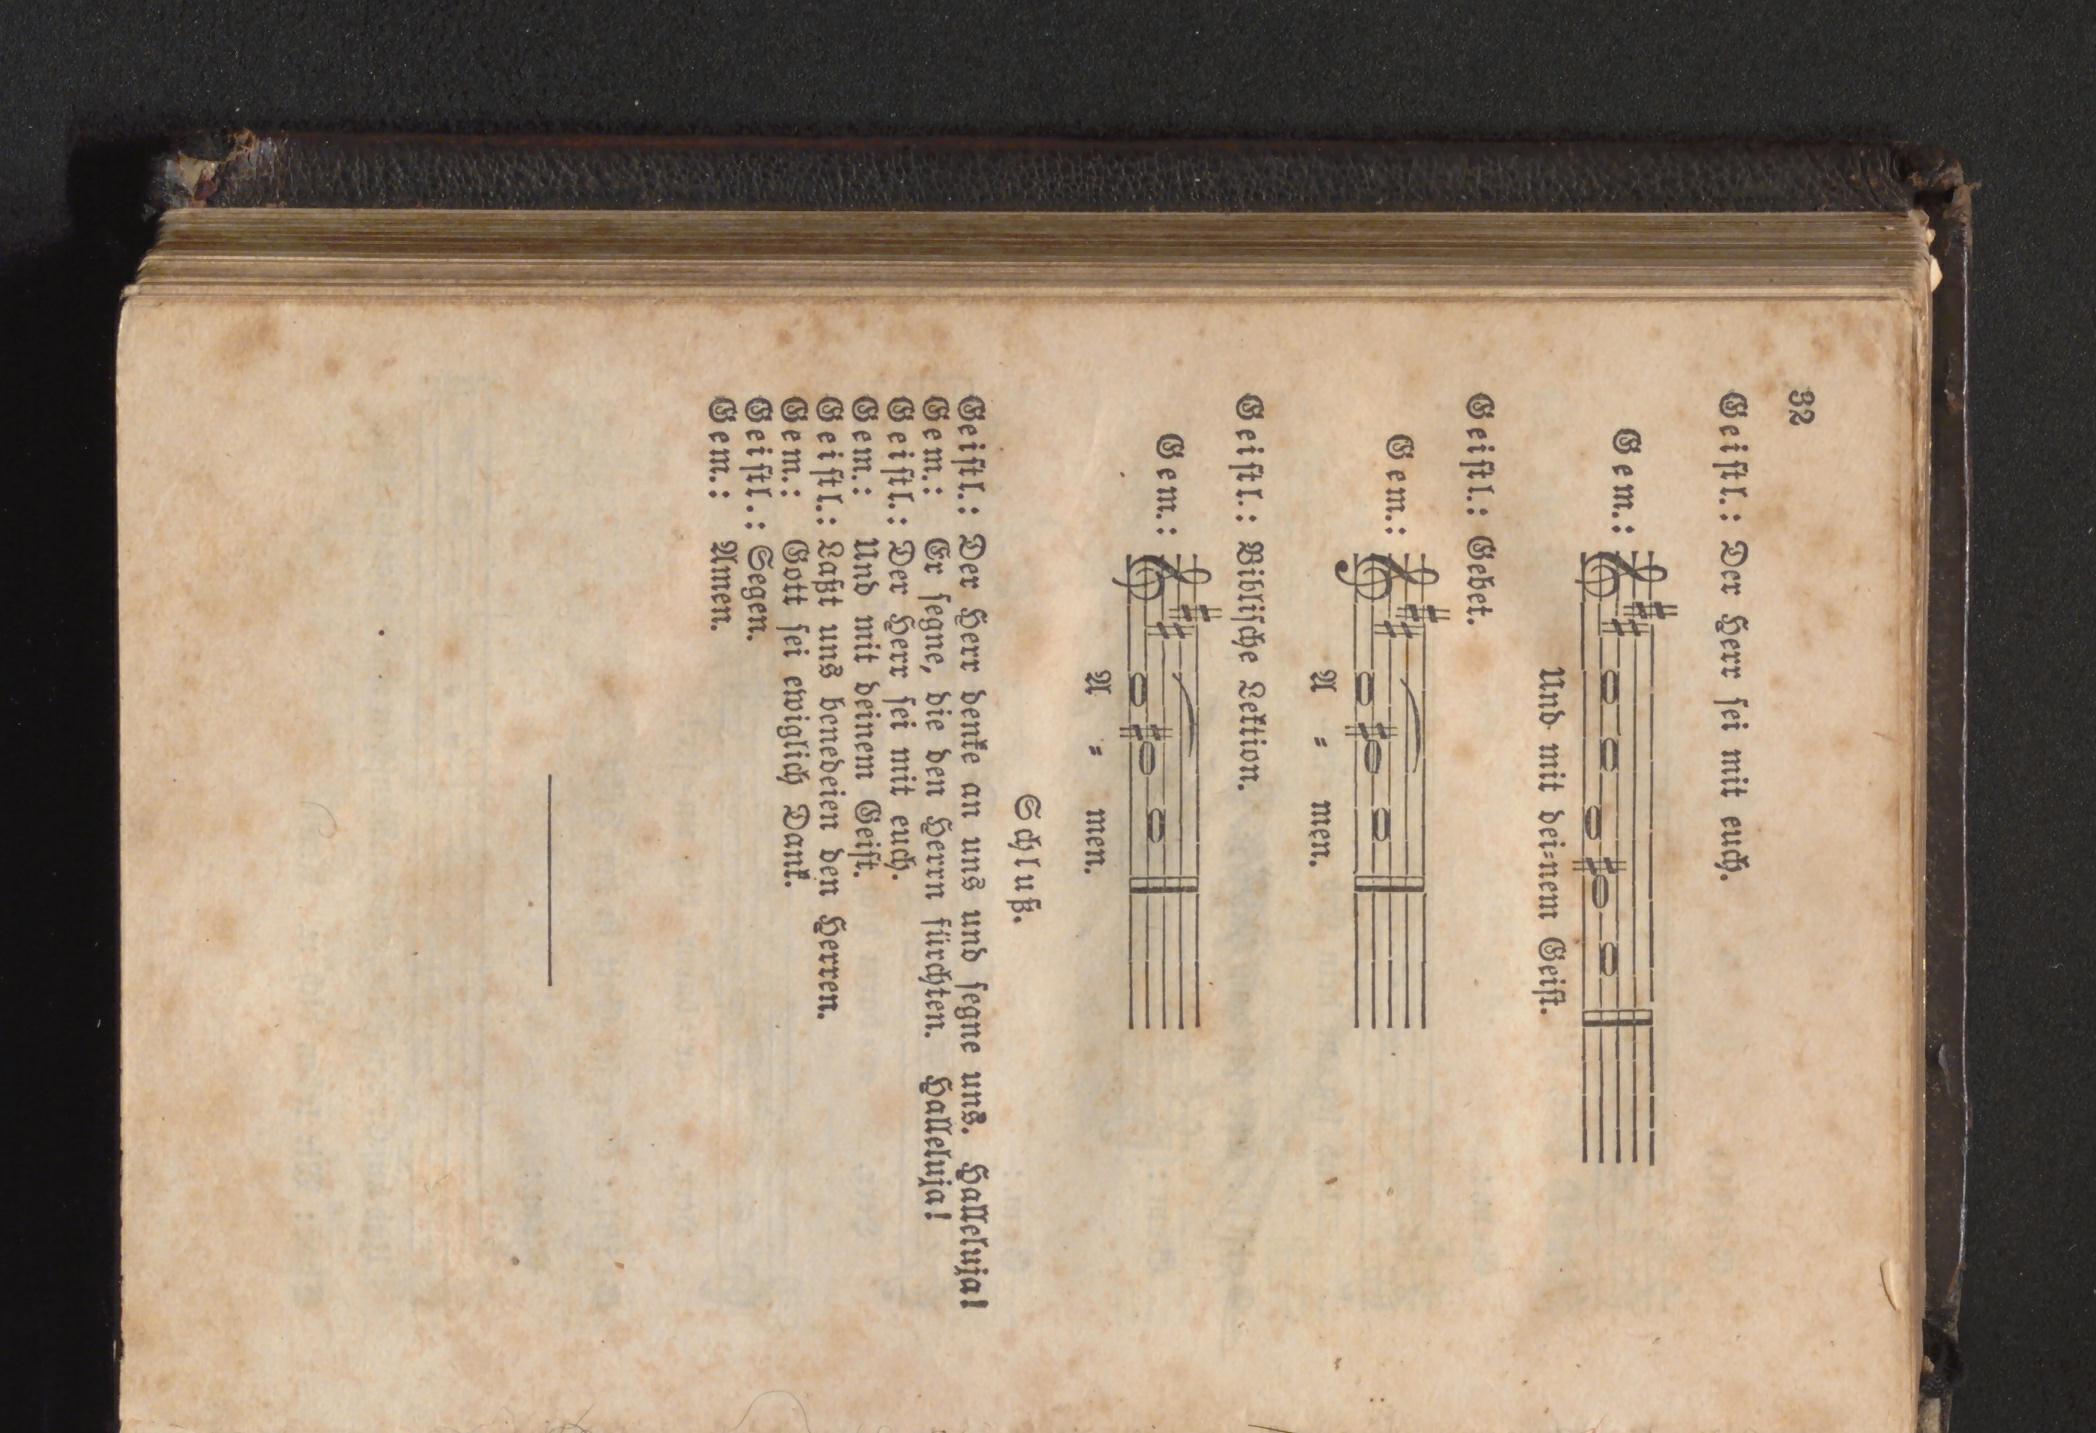 32
Geistl.: Der Herr sei mit euch.
Gem.:
Und mit dei=nem Geist.
Geistl.: Gebet.
Gem.:
A = men.
Geistl.: Biblische Lektion.
Gem.:
A = men.
Schluß.
Geistl.: Der Herr denke an uns und segne uns. Halleluja!
Gem.: Er segne, die den Herrn fürchten. Halleluja!
Geistl.: Der Herr sei mit euch.
Gem.: Und mit deinem Geist.
Geistl.: Laßt uns benedeien den Herren.
Gem.: Gott sei ewiglich Dank.
Geistl.: Segen.
Gem.: Amen.